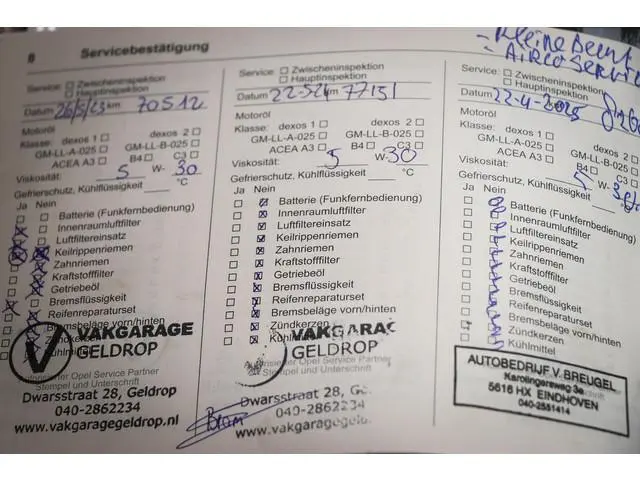 8 Servicebestätigung
Service: Zwischeninspektion
Hauptinspektion
Datum 26/5/23 km 70512
Motoröl
Klasse: dexos 1 dexos 2
GM-LL-A-025 GM-LL-B-025
ACEA A3 B4 C3
Viskosität: 5 W- 30
Gefrierschutz, Kühlflüssigkeit °C
Ja Nein
Batterie (Funkfernbedienung)
Innenraumluftfilter
Luftfiltereinsatz
Keilrippenriemen
Zahnriemen
Kraftstofffilter
Getriebeöl
Bremsflüssigkeit
Reifenreparaturset
Bremsbeläge vorn/hinten
Zündkerzen
Kühlmittel
VAKGARAGE
GELDROP
Opel Service Partner
Stempel und Unterschrift
Dwarsstraat 28, Geldrop
040-2862234
www.vakgaragegeldrop.nl
Service: Zwischeninspektion
Hauptinspektion
Datum 22-5-24 km 77151
Motoröl
Klasse: dexos 1 dexos 2
GM-LL-A-025 GM-LL-B-025
ACEA A3 B4 C3
Viskosität: 5 W- 30
Gefrierschutz, Kühlflüssigkeit °C
Ja Nein
Batterie (Funkfernbedienung)
Innenraumluftfilter
Luftfiltereinsatz
Keilrippenriemen
Zahnriemen
Kraftstofffilter
Getriebeöl
Bremsflüssigkeit
Reifenreparaturset
Bremsbeläge vorn/hinten
Zündkerzen
VAKGARAG
GELDROP
Opel Service Partner
Stempel und Unterschrift
Dwarsstraat 28, Ge
040-2862234
www.vakgaragegeld
Bram
- Kleine Beurt
- AIRCO SERVICE
Service: Zwischeninspektion
Hauptinspektion
Datum 22-4-2025
Motoröl
Klasse: dexos 1 dexos 2
GM-LL-A-025 GM-LL-B-025
ACEA A3 B4 C3
Viskosität: 5 W- 30
Gefrierschutz, Kühlflüssigkeit °C
Ja Nein
Batterie (Funkfernbedienung)
Innenraumluftfilter
Luftfiltereinsatz
Keilrippenriemen
Zahnriemen
Kraftstofffilter
Getriebeöl
Bremsflüssigkeit
Reifenreparaturset
Bremsbeläge vorn/hinten
Zündkerzen
Kühlmittel
AUTOBEDRIJF V. BREUGEL
Karolingersweg 3a
5616 HX EINDHOVEN
040-2551414